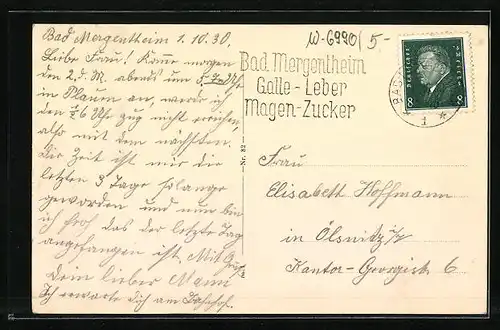 Bad Mergentheim 1.10.30.
Liebe Frau! Komme morgen
den 2. d. M. abends um 5 Uhr
in Plauen an, werde ich
den 1/2 6 Uhr zug nicht erreichen,
also mit dem nächsten.
Die Zeit ist mir die
letzten 3 Tage so lange
geworden und nun bin
ich froh das der letzte Tag
angefangen ist. Mit Gruß
Dein lieber Mann
Ich erwarte dich am Bahnhof.
W-6990/5-
Bad Mergentheim
Galle-Leber
Magen-Zucker
DEUTSCHES REICH
8 8
BAD
Nr. 82
Frau
Elisabeth Hoffmann
in Ölsnitz i/V
Kantor-Georgistr 6